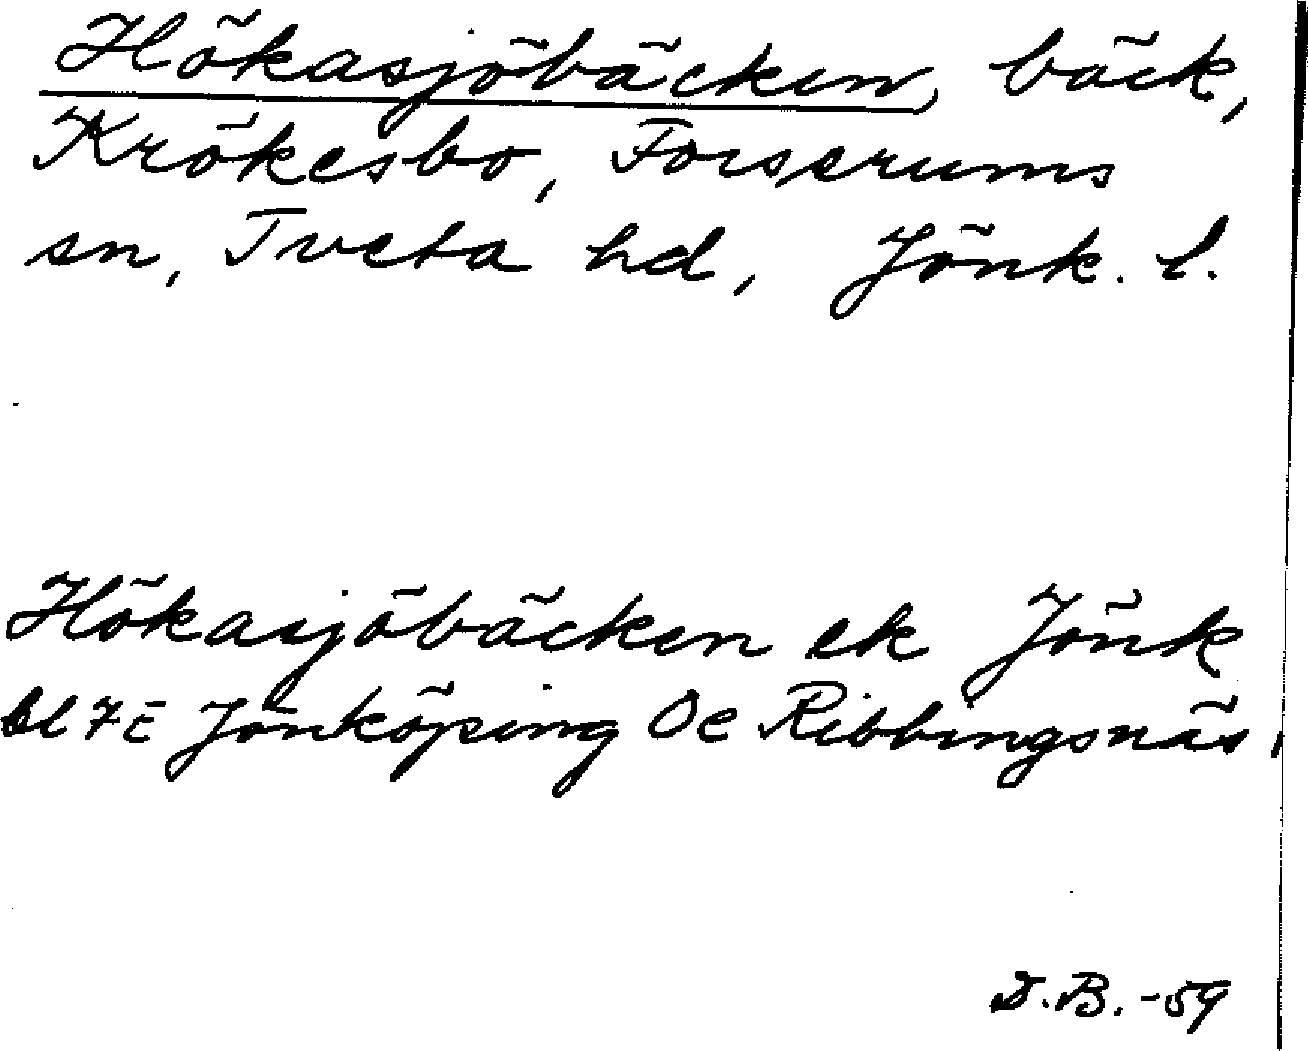 Hökasjöbäcken, bäck,
Krökesbo, Forserums
sn, Tveta hd, Jönk. l.
Hökasjöbäcken ek Jönk
bl 7E Jönköping Oe Ribbingsnäs,
D.B. -59